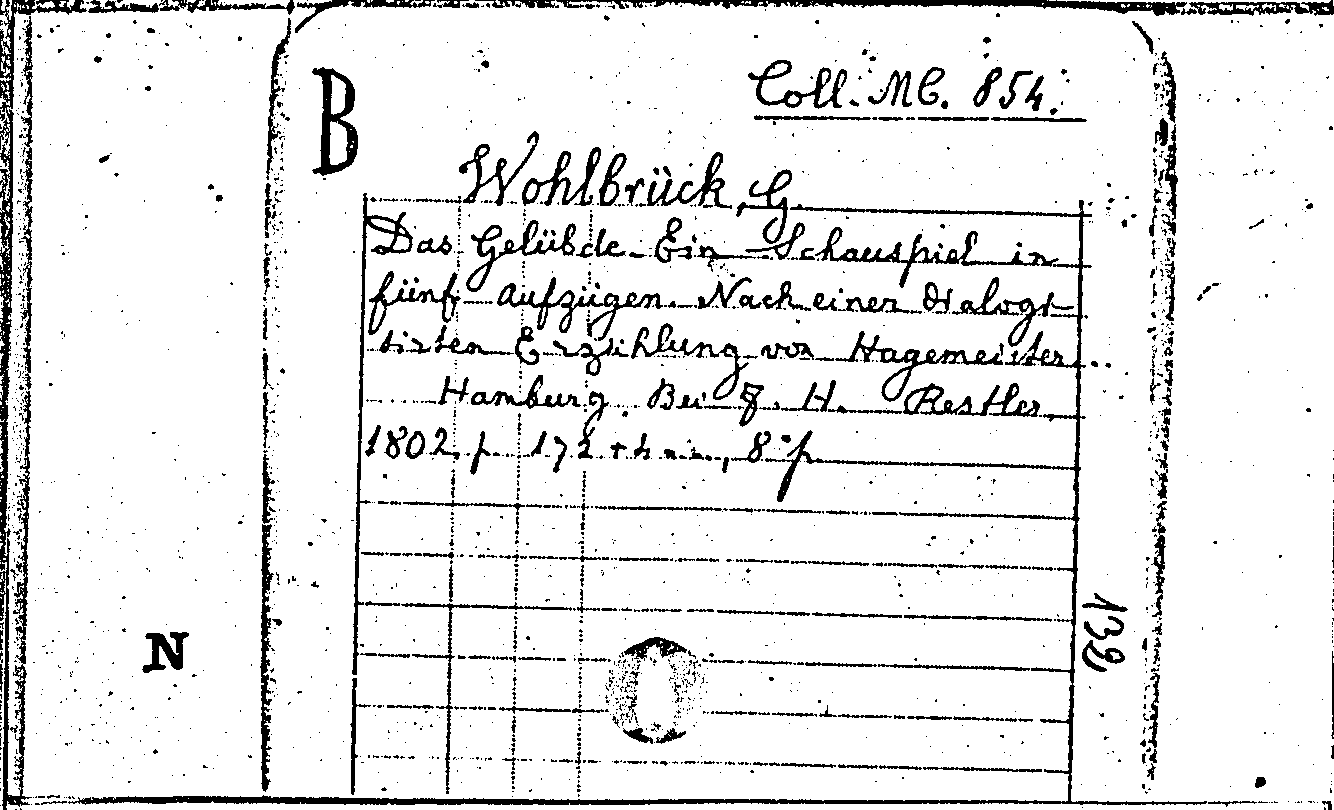 B
Coll. MC. 854.
Wohlbrück, G.
Das Gelübde. Ein Schauspiel in
fünf Aufzügen. Nach einer dialogi-
sirten Erzählung von Hagemeister...
Hamburg. Bei H. Restler.
1802. p. 172 8°
N
139